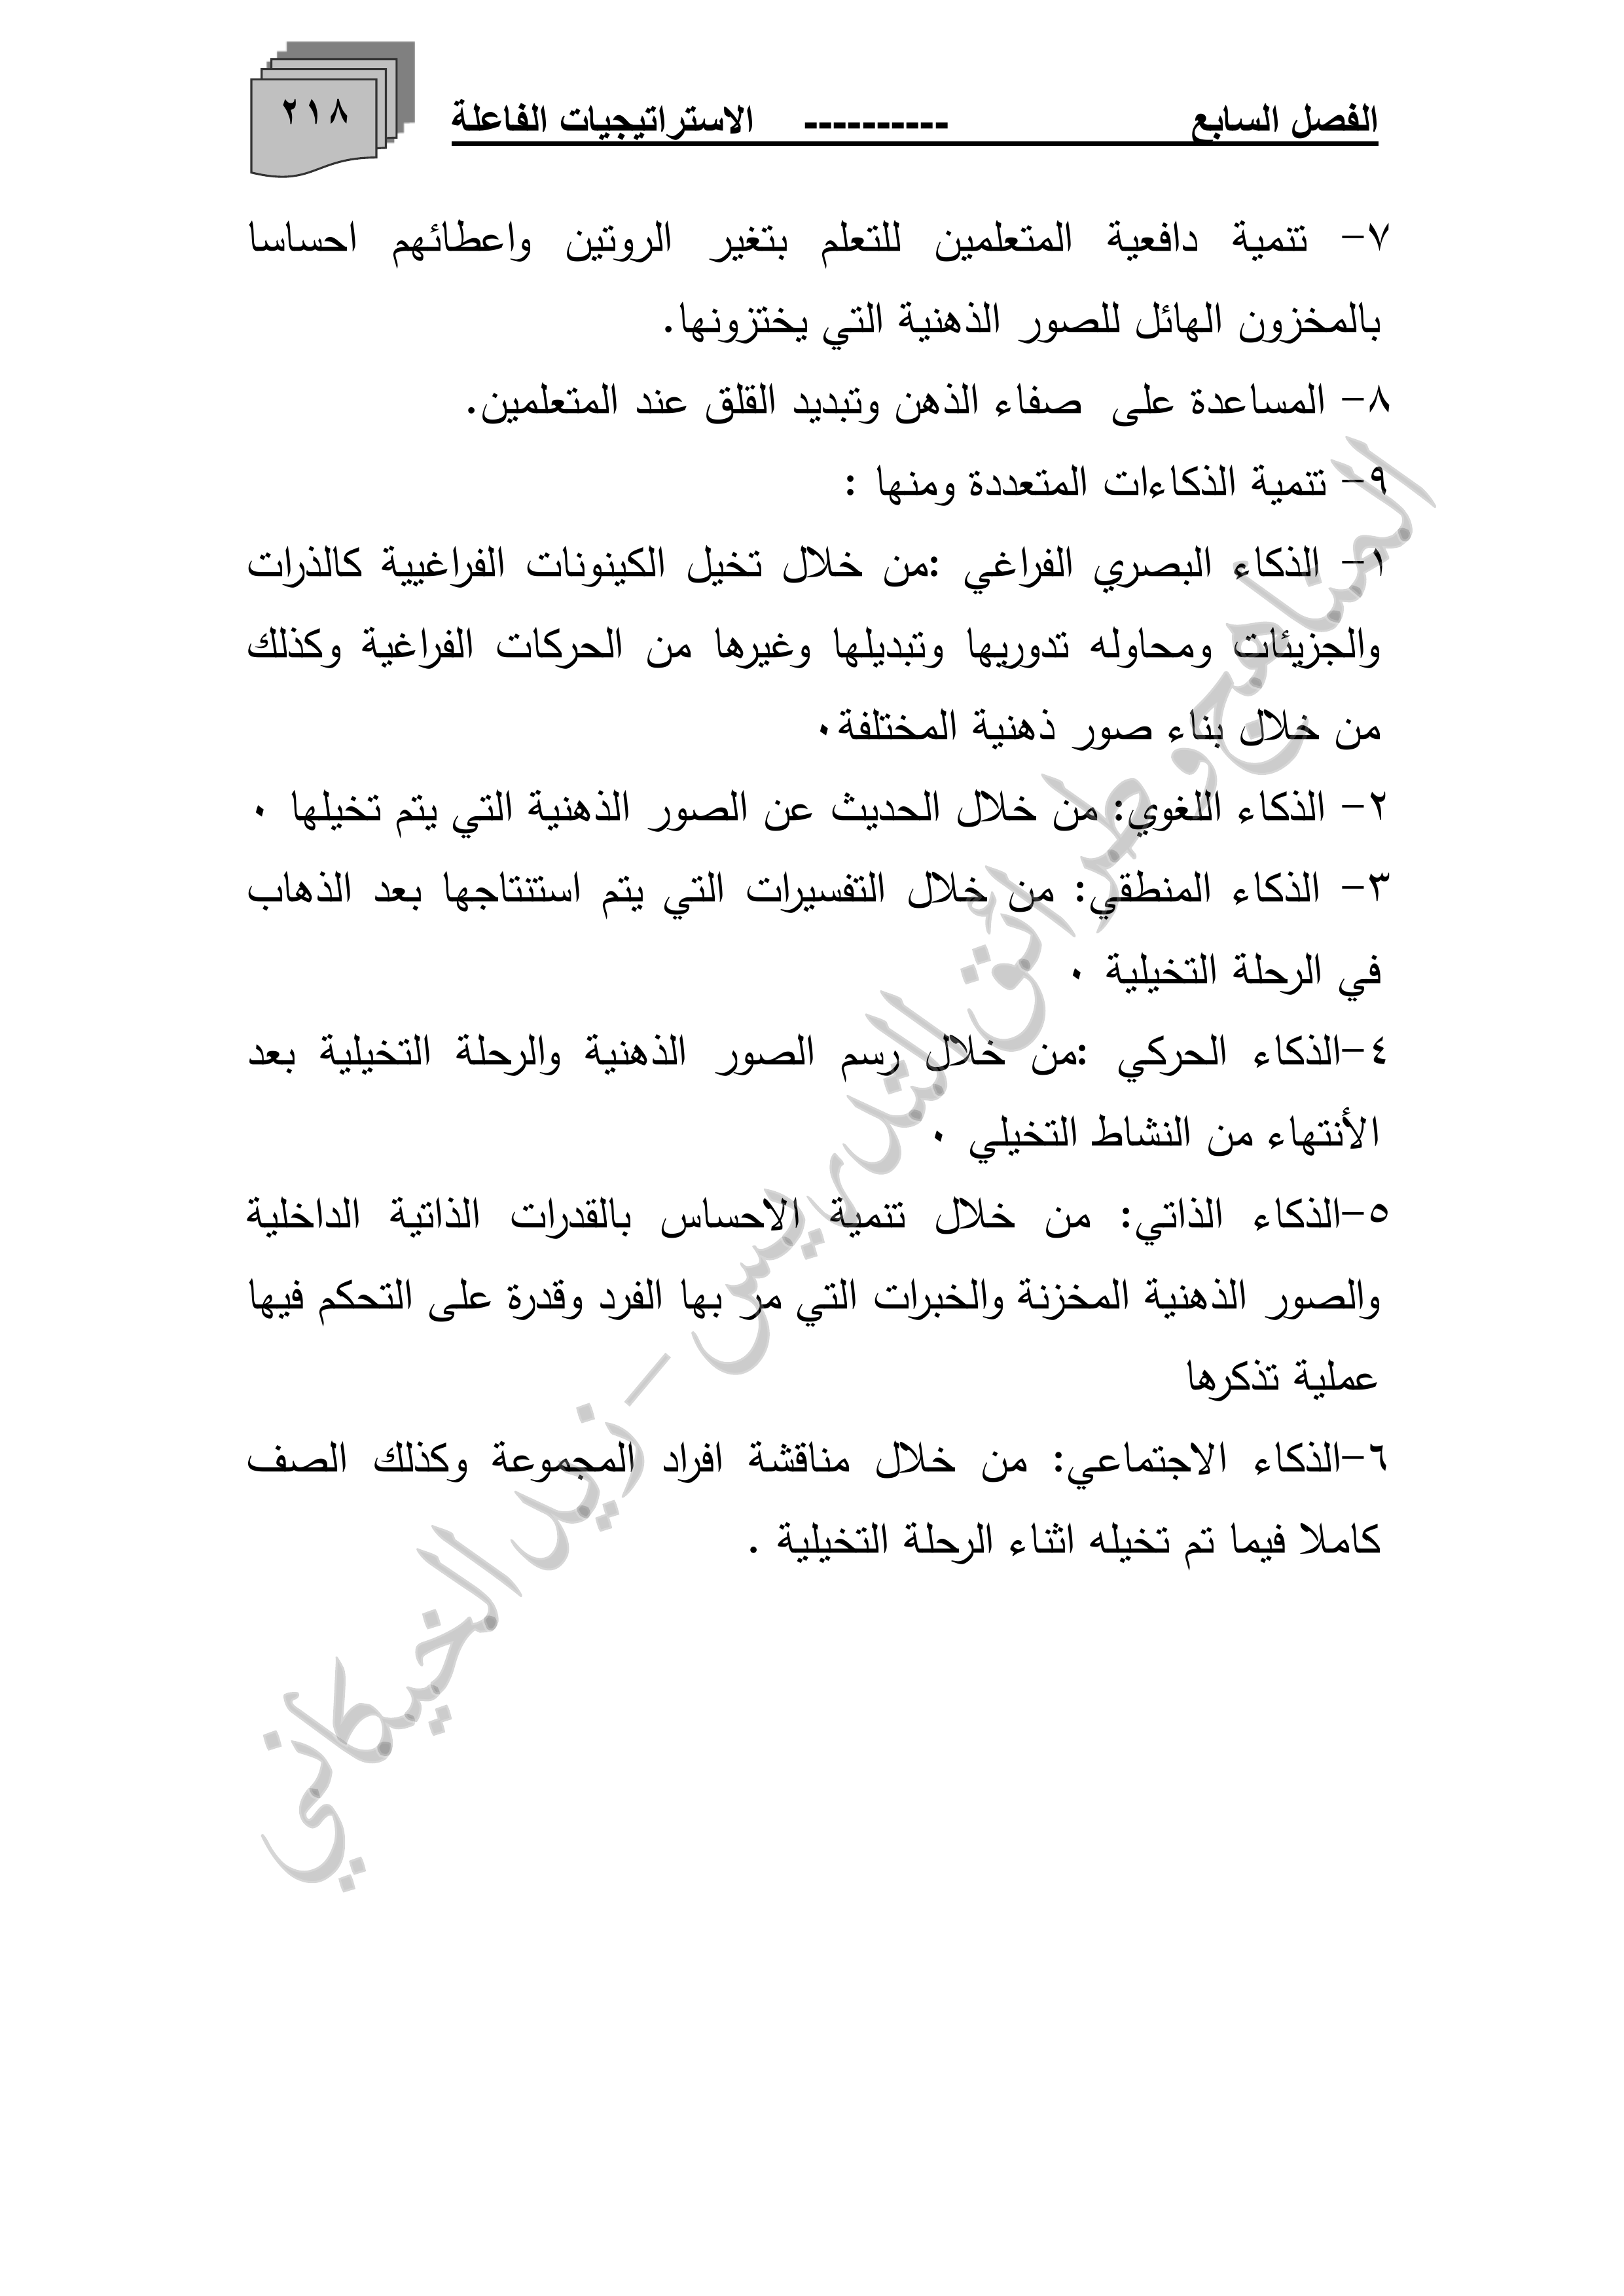 الفصل السابع ---------- الاستراتيجيات الفاعلة
٢١٨
٧- تنمية دافعية المتعلمين للتعلم بتغير الروتين واعطائهم احساسا
بالمخزون الهائل للصور الذهنية التي يختزونها.
٨- المساعدة على صفاء الذهن وتبديد القلق عند المتعلمين.
٩- تنمية الذكاءات المتعددة ومنها :
١- الذكاء البصري الفراغي :من خلال تخيل الكينونات الفراغيية كالذرات
والجزيئات ومحاوله تدوريها وتبديلها وغيرها من الحركات الفراغية وكذلك
من خلال بناء صور ذهنية المختلفة٠
٢- الذكاء اللغوي: من خلال الحديث عن الصور الذهنية التي يتم تخيلها ٠
٣- الذكاء المنطقي: من خلال التفسيرات التي يتم استنتاجها بعد الذهاب
في الرحلة التخيلية ٠
٤-الذكاء الحركي :من خلال رسم الصور الذهنية والرحلة التخيلية بعد
الأنتهاء من النشاط التخيلي ٠
٥-الذكاء الذاتي: من خلال تنمية الاحساس بالقدرات الذاتية الداخلية
والصور الذهنية المخزنة والخبرات التي مر بها الفرد وقدرة على التحكم فيها
عملية تذكرها
٦-الذكاء الاجتماعي: من خلال مناقشة افراد المجموعة وكذلك الصف
كاملا فيما تم تخيله اثناء الرحلة التخيلية .
المناهج وطرائق التدريس - زيد الخيكاني